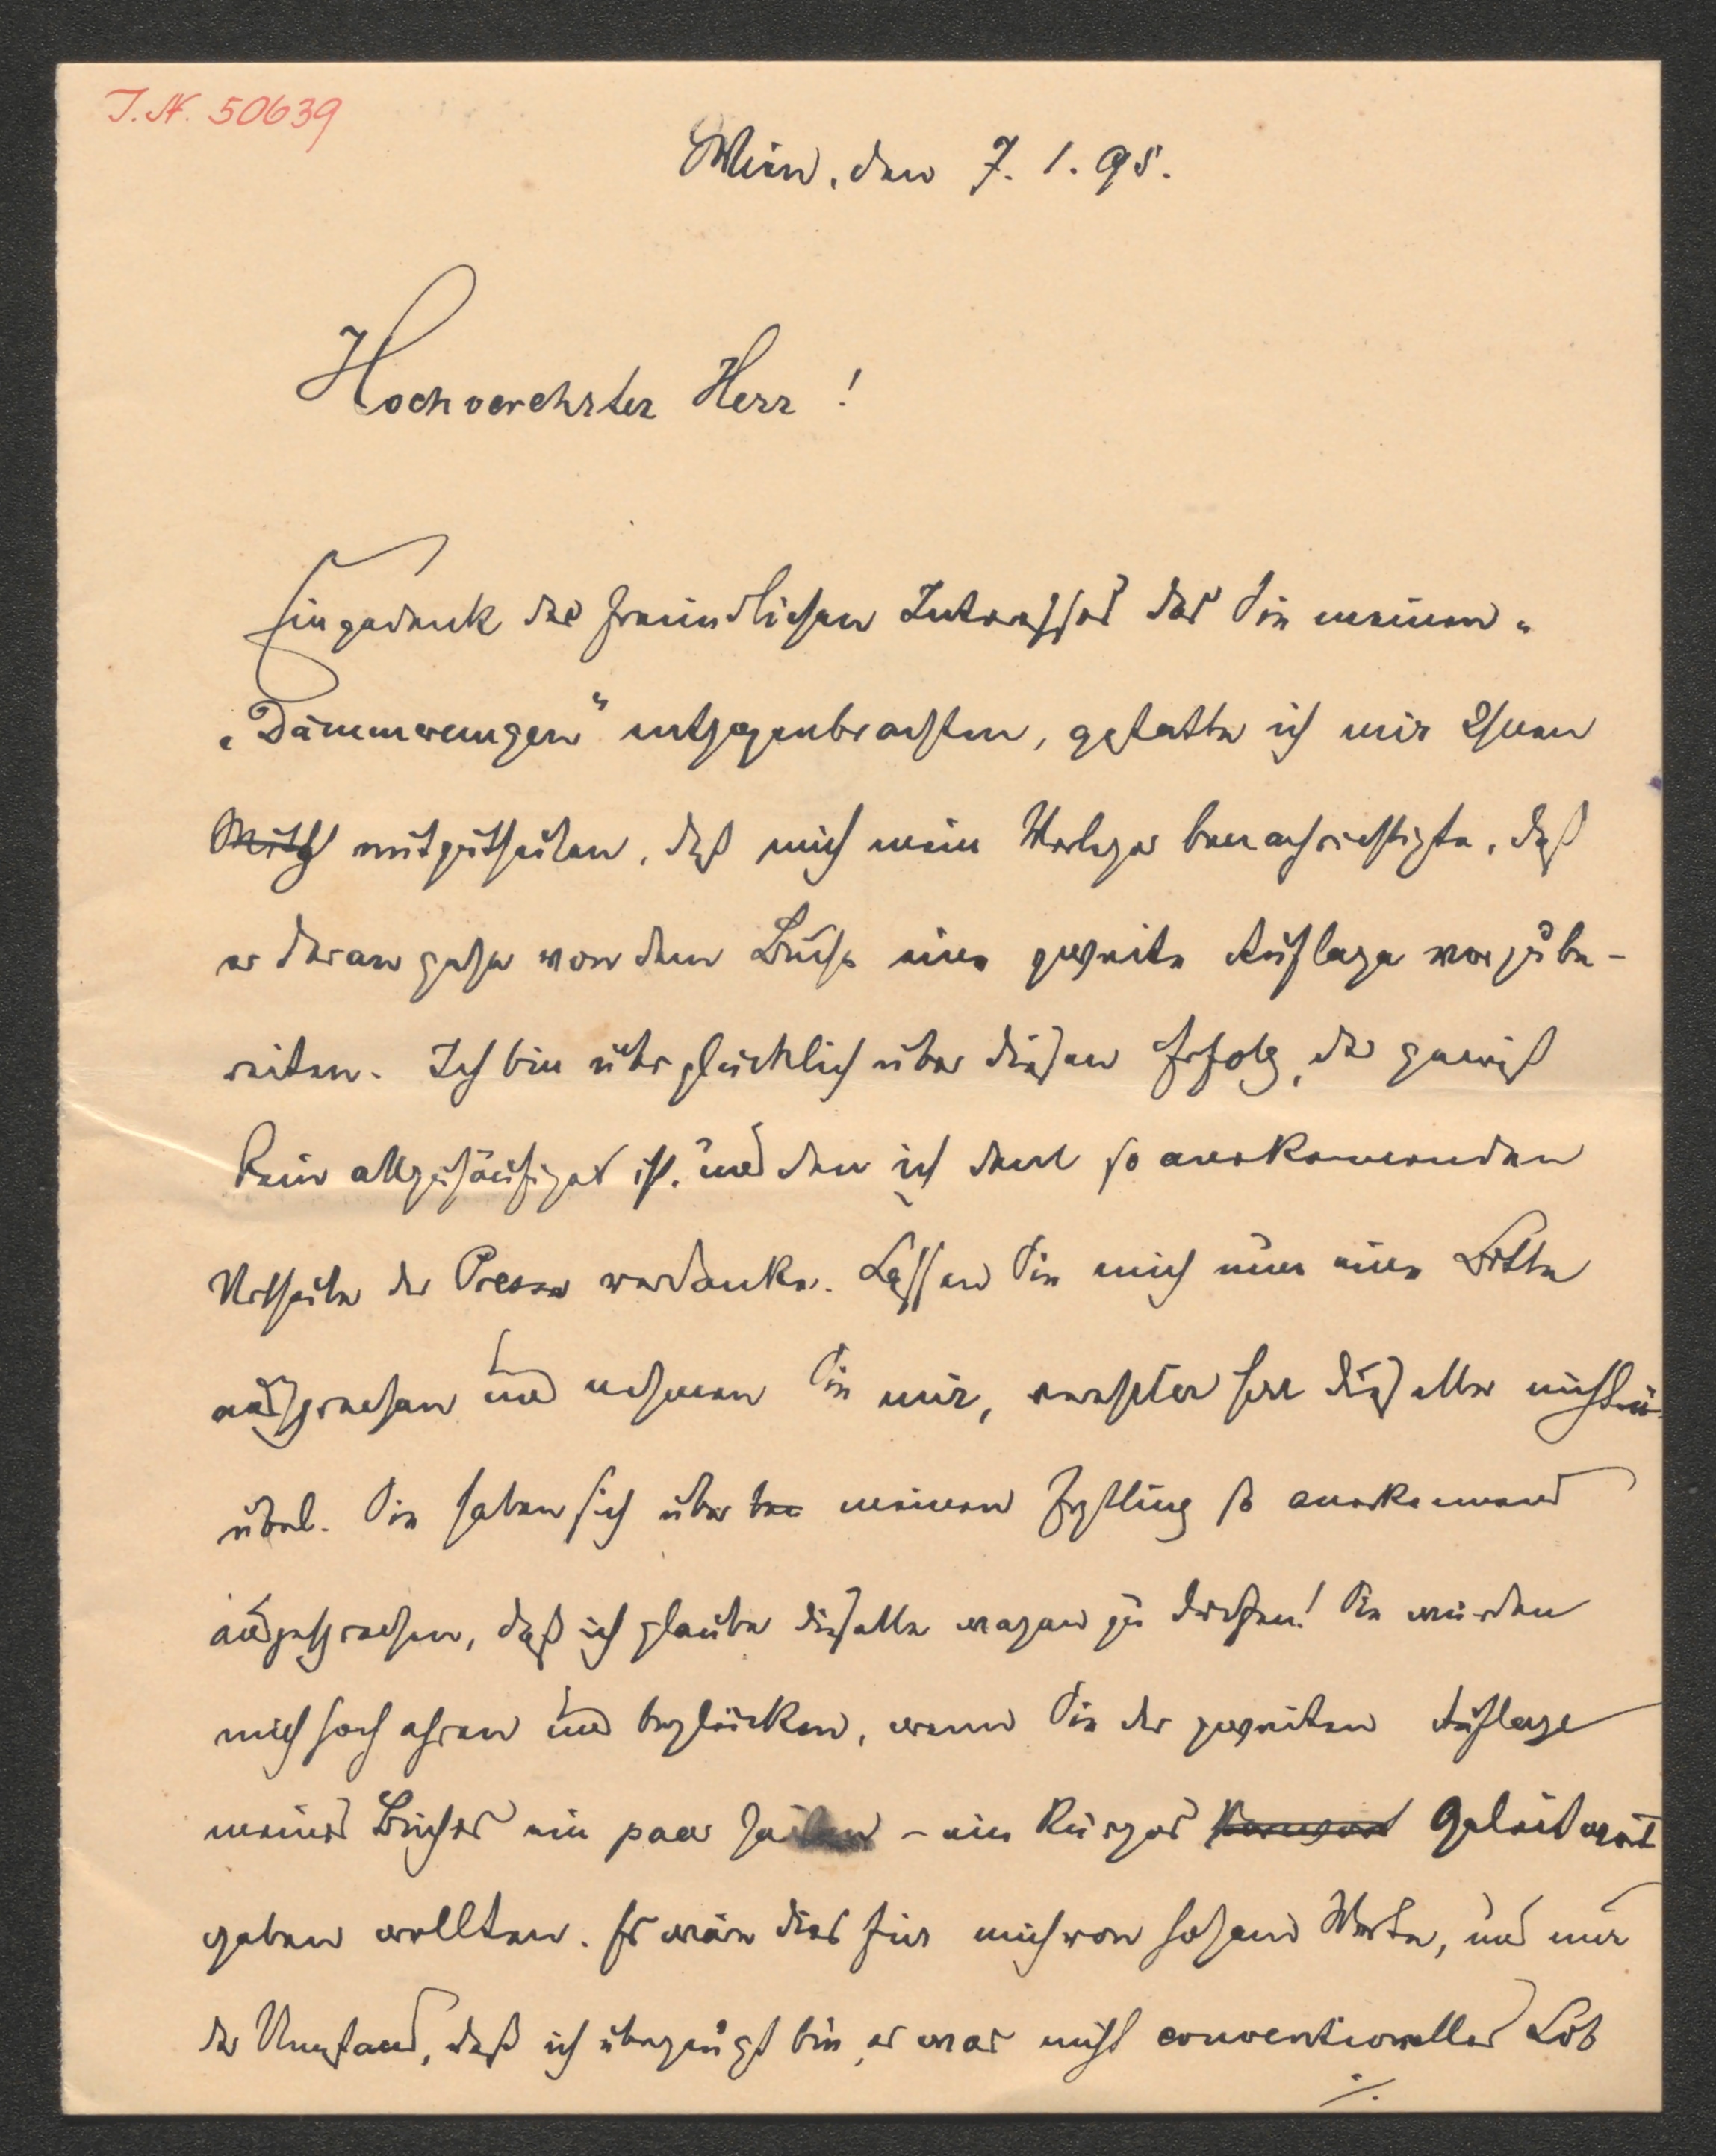 I.N. 50639
Wien, den 7. 1. 95.
Hochverehrter Herr!
Eingedenk des freundlichen Interesses das Sie meinen "
„Dämmerungen“ entgegenbrachten, gestatte ich mir Ihnen
mitzutheilen, daß mich mein Verleger benachrichtigte, daß
er daran gehe von dem Buche eine zweite Auflage vorzube-
reiten. Ich bin überglücklich über diesen Erfolg, der gewiß
kein allzuhäufiger ist, und den ich den so anerkennenden
Urtheilen der Presse verdanke. Lassen Sie mich nun eine Bitte
aussprechen und nehmen Sie mir, verehrter Herr dieselbe nicht
übel. Sie haben sich über meinen Erstling so anerkennend
ausgesprochen, daß ich glaube dieselbe wagen zu dürfen! Sie würden
mich hoch ehren und beglücken, wenn Sie der zweiten Auflage
meines Buches ein paar Zeilen – ein kurzes Geleitwort
geben wollten. Es wäre dies für mich von hohem Werte, und nur
der Umstand, daß ich überzeugt bin, es war nicht conventionelles Lob
./.